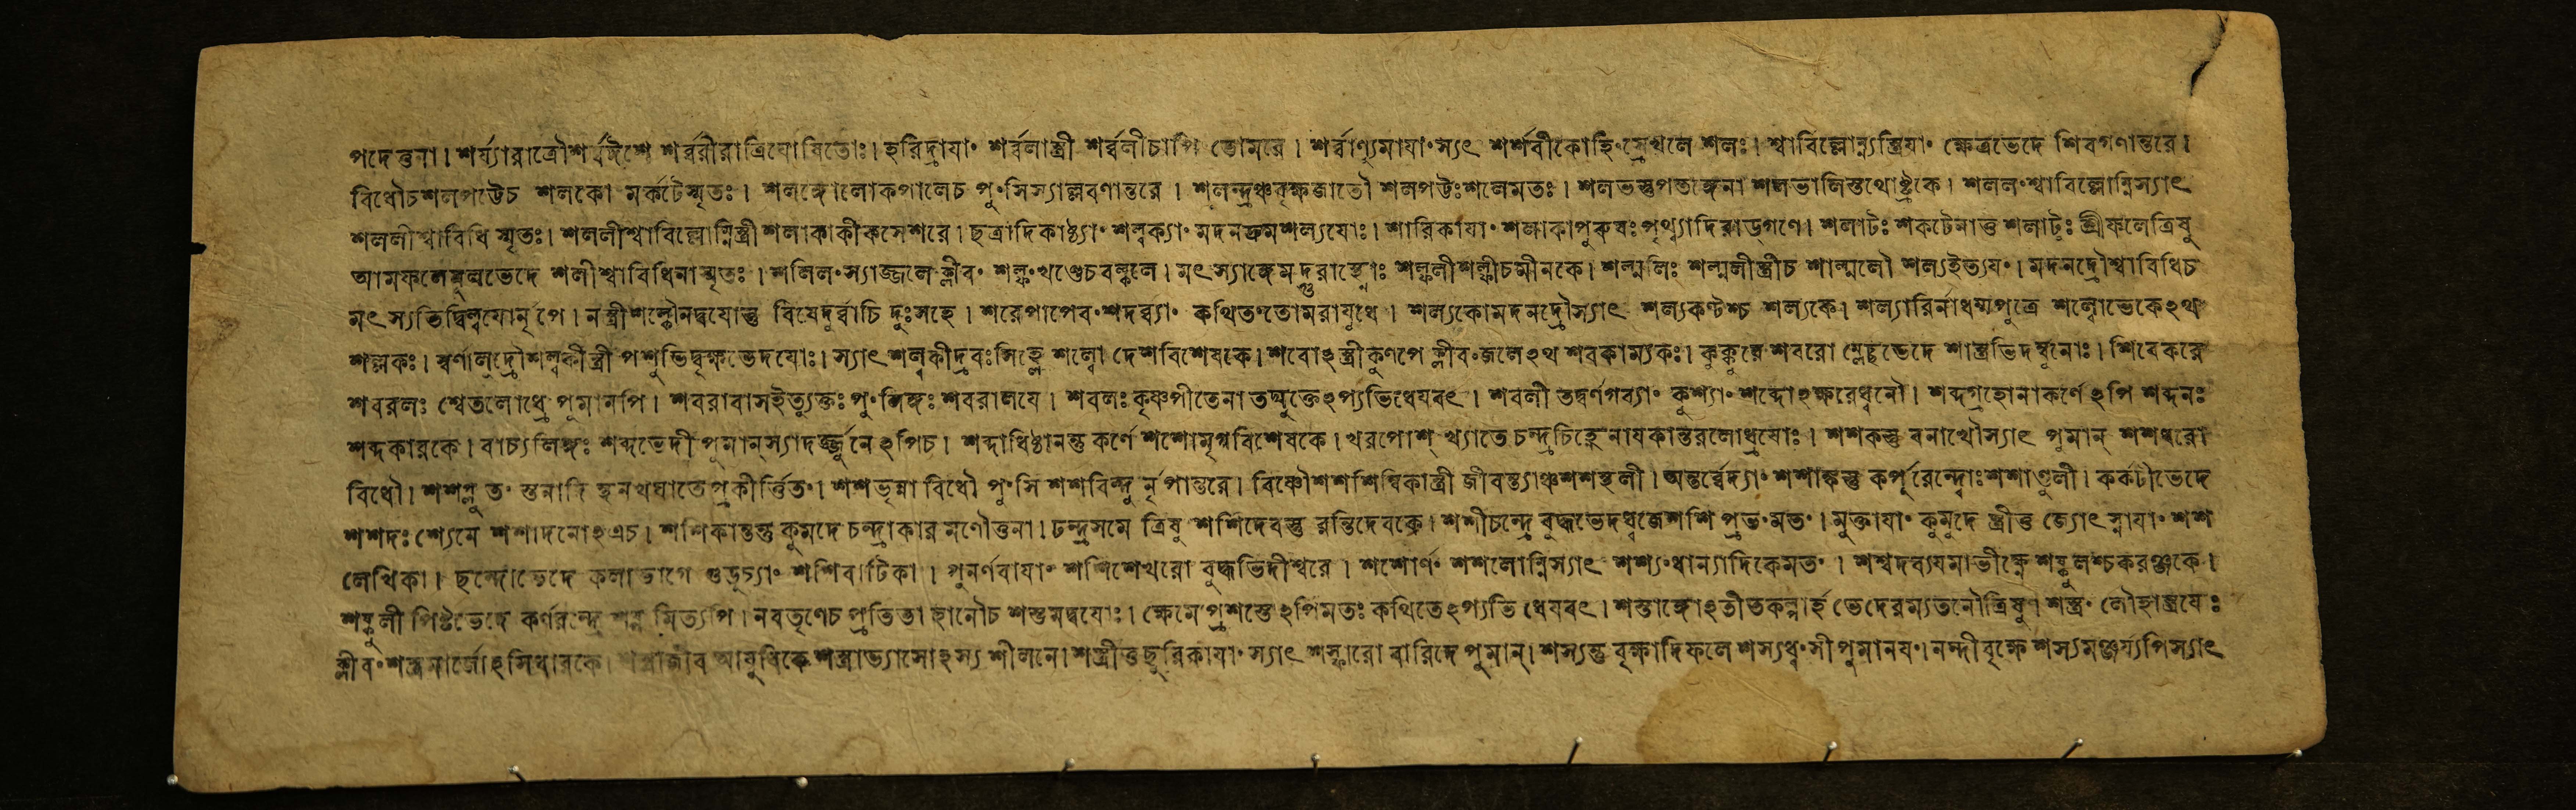 পদে ত্তনা। শর্য্যারাত্রৌশর্ব্বঈশে শর্ব্বরীরাত্রিযোষিতোঃ। হরিদ্রাযাং শর্ব্বলাস্ত্রী শর্ব্বলীচাপি তোমরে। শর্ব্বাণ্যুমাযাংস্যৎ শর্শবীকোহিংস্রেখলে শলঃ। শ্বাবিল্লোম্ন্যস্ত্রিযাং ক্ষেত্রভেদে শিবগণান্তরে।
বিধৌচশলপট্টেচ শলকো মর্কটেস্মৃতঃ। শলঙ্গোলোকপালেচ পুংসিস্যাল্লবণান্তরে। শলন্দ্রঞ্চবৃক্ষজাতৌ শলপট্টঃশলেমতঃ। শলভস্তুপতঙ্গেনা শলভালিস্তথোষ্ট্রকে। শললংশ্বাবিল্লোম্নিস্যাৎ
শললীশ্বাবিধি স্মৃতঃ। শললীশ্বাবিল্লোম্নিস্ত্রী শলাকাকীকসেশরে। ছত্রাদিকাষ্ঠ্যাং শল্লক্যাং মদনদ্রুমশল্যযোঃ। শারিকাযাং শলাকাপুরুষঃ পৃথ্ব্যাদিরাড্গণে। শলাটঃ শকটেনাত্ত শলাটুঃ শ্রীফলেত্রিষু
আমফলেমূলভেদে শলীশ্বাবিধিনাস্মৃতঃ। শলিলংস্যাজ্জলে ক্লীবং শল্কংখণ্ডেচবল্কলে। মৎস্যাঙ্গেমদ্গুরাস্ত্নোঃ শল্কলীশল্কীচমীনকে। শল্মলিঃ শল্মলীস্ত্রীচ শাল্মলৌ শল্যইত্যযং। মদনদ্রৌশ্বাবিধিচ
মৎস্যভিদ্বিল্বযোর্নৃপে। নস্ত্রীশল্কৌনদ্বযোস্তু বিষেদুর্ব্বাচি দুঃসহে। শরেপাপেবংশদব্যাং কথিতংতোমরাযুধে। শল্যকোমদনদ্রৌস্যাৎ শল্যকণ্টশ্চ শল্যকে। শল্যারির্নাধর্ম্মপুত্রে শল্লোভেকেঽথ
শল্লকঃ। বর্ণালুদ্রৌশল্লকীস্ত্রী পশুভিদ্বৃক্ষভেদযোঃ। স্যাৎ শল্লকীদ্রবঃসিহ্লে শল্বো দেশবিশেষকে। শবোঽস্ত্রীকুণপে ক্লীবংজলেঽথ শবকাম্যকঃ। কুক্কুরে শবরো ম্লেচ্ছভেদে শাস্ত্রভিদম্বুনোঃ। শিবেকরে
শবরলঃ শ্বেতলোধ্রে পুমানপি। শবরাবাসইত্যুক্তঃ পুংলিঙ্গঃ শবরালযে। শবলঃ কৃষ্ণপীতেনা তদ্যুক্তেঽপ্যভিধেযবৎ। শবলী তদ্বর্ণগব্যাং কুশ্যাং শব্দোঽক্ষরেধ্বনৌ। শব্দগ্রহোনাকর্ণেঽপি শব্দনঃ
শব্দকারকে। বাচ্যলিঙ্গঃ শব্দভেদী পুমান্স্যাদর্জ্জুনেঽপিচ। শব্দাধিষ্ঠানন্তু কর্ণে শশোমৃগবিশেষকে। খরপোশ্ খ্যাতে চন্দ্রচিহ্নে নাযকান্তরলোধ্রযোঃ। শশকস্তু বনাখৌস্যাৎ পুমান্ শশধরো
বিধৌ। শশপ্লুতং স্তনাদি হনখঘাতেপ্রকীর্ত্তিতং। শশভৃন্না বিধৌ পুংসি শশবিন্দুর্নৃপান্তরে। বিষ্ণৌশশশিম্বিকাস্ত্রী জীবন্ত্যাঞ্চশশস্থলী। অন্তর্ব্বেদ্যাং শশাঙ্কস্তু কর্পূরেন্দ্বোঃশশাণ্ডুলী। কর্কটীভেদে
শশদঃ শ্যেনে শশাদনোঽএচ। শশিকান্তন্তু কুমদে চন্দ্রাকার মণৌত্তনা। চন্দ্রসমে ত্রিষু শশিদেবস্তু রন্তিদেবকে। শশীচন্দ্রে বুদ্ধভেদধ্বজেশশি প্রভংমতং। মুক্তাযাং কুমুদে স্ত্রীত্ত জ্যোৎস্নাযাং শশ
লেখিকা। ছন্দোভেদে কলাভাগে গুডুচ্যাং শশিবাটিকা। পুনর্ণবাযাং শশিশেখরো বুদ্ধভিদীশ্বরে। শশোর্ণং শশলোম্নিস্যাৎ শশ্যংধান্যাদিকেমতং। শশ্বদব্যযমাভীক্ষ্ণে শষ্কুলশ্চকরঞ্জকে।
শষ্কুলী পিষ্টভেদে কর্ণরন্ধ্রে মিত্যপি। নবতৃণেচ প্রতিভা হানৌচ শস্তমদ্বযোঃ। ক্ষেমে প্রশস্তেঽপিমতঃ কথিতেঽপ্যভি ধেযবৎ। শস্তাঙ্গোঽতীতকল্পার্হ ভেদেরম্যতনৌত্রিষু। শস্ত্রং লৌহাস্ত্রযেঃ
ক্লীবং শস্ত্রমার্জোঽসিধাবকে। শস্ত্রাজীব আযুধিকে শস্ত্রাভ্যাসোঽস্য শীলনে। শস্ত্রীত্তছুরিকাযাং স্যাৎ শস্ফারো বারিদে পুমান্। শস্যন্তু বৃক্ষাদিফলে শস্যধ্বংসী পুমানযং। নন্দীবৃক্ষে শস্যমঞ্জর্য্যপিস্যাৎ